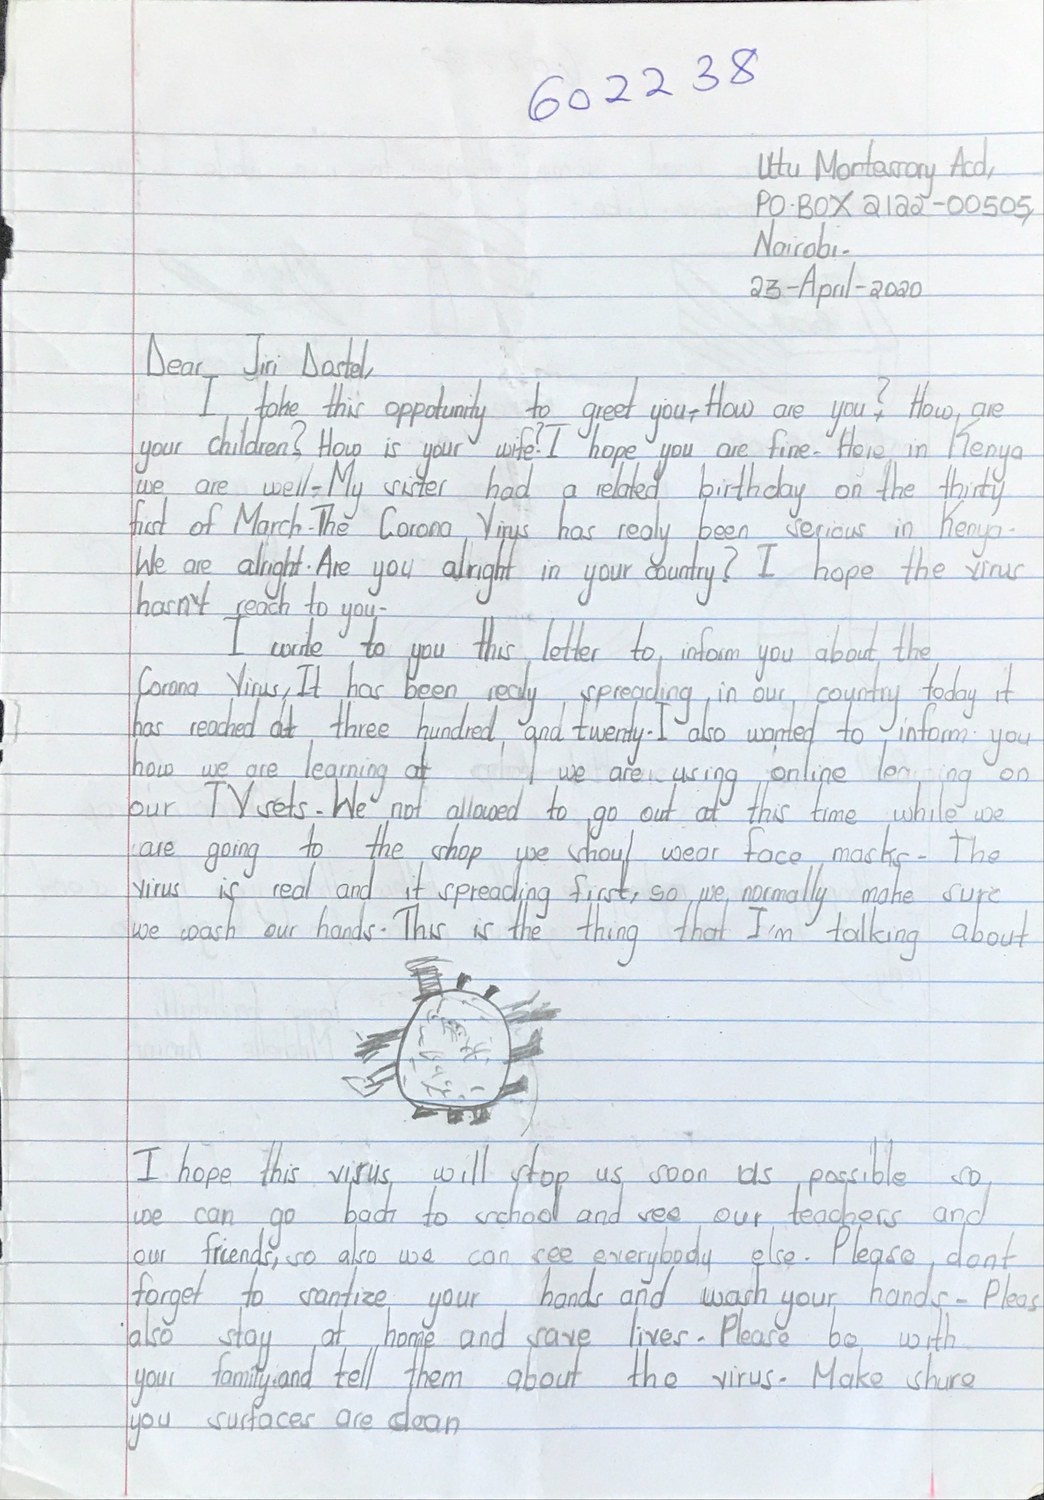 602238
Utu Montessory Acd,
PO.BOX 2122-00505,
Nairobi.
23-April-2020
Dear Jiri Dostel,
I take this oppotunity to greet you. How are you? How are
your children? How is your wife? I hope you are fine. Here in Kenya
we are well. My sister had a related birthday on the thirty
first of March. The Corona Virus has realy been serious in Kenya.
We are alright. Are you alright in your country? I hope the virus
hasn't reach to you.
I wrote to you this letter to inform you about the
Corona Virus, It has been realy spreading in our country today it
has reached at three hundred and twenty. I also wanted to inform you
how we are learning at we are using online learning on
our TV sets. We not allowed to go out at this time while we
are going to the shop we shoul wear face masks. The
virus is real and it spreading first, so we normally make sure
we wash our hands. This is the thing that I'm talking about
I hope this virus will stop us soon as possible so
we can go back to school and see our teachers and
our friends, so also we can see everybody else. Please dont
forget to santize your hands and wash your hands. Pleas
also stay at home and save lives. Please be with
your family and tell them about the virus. Make shure
you surfaces are clean